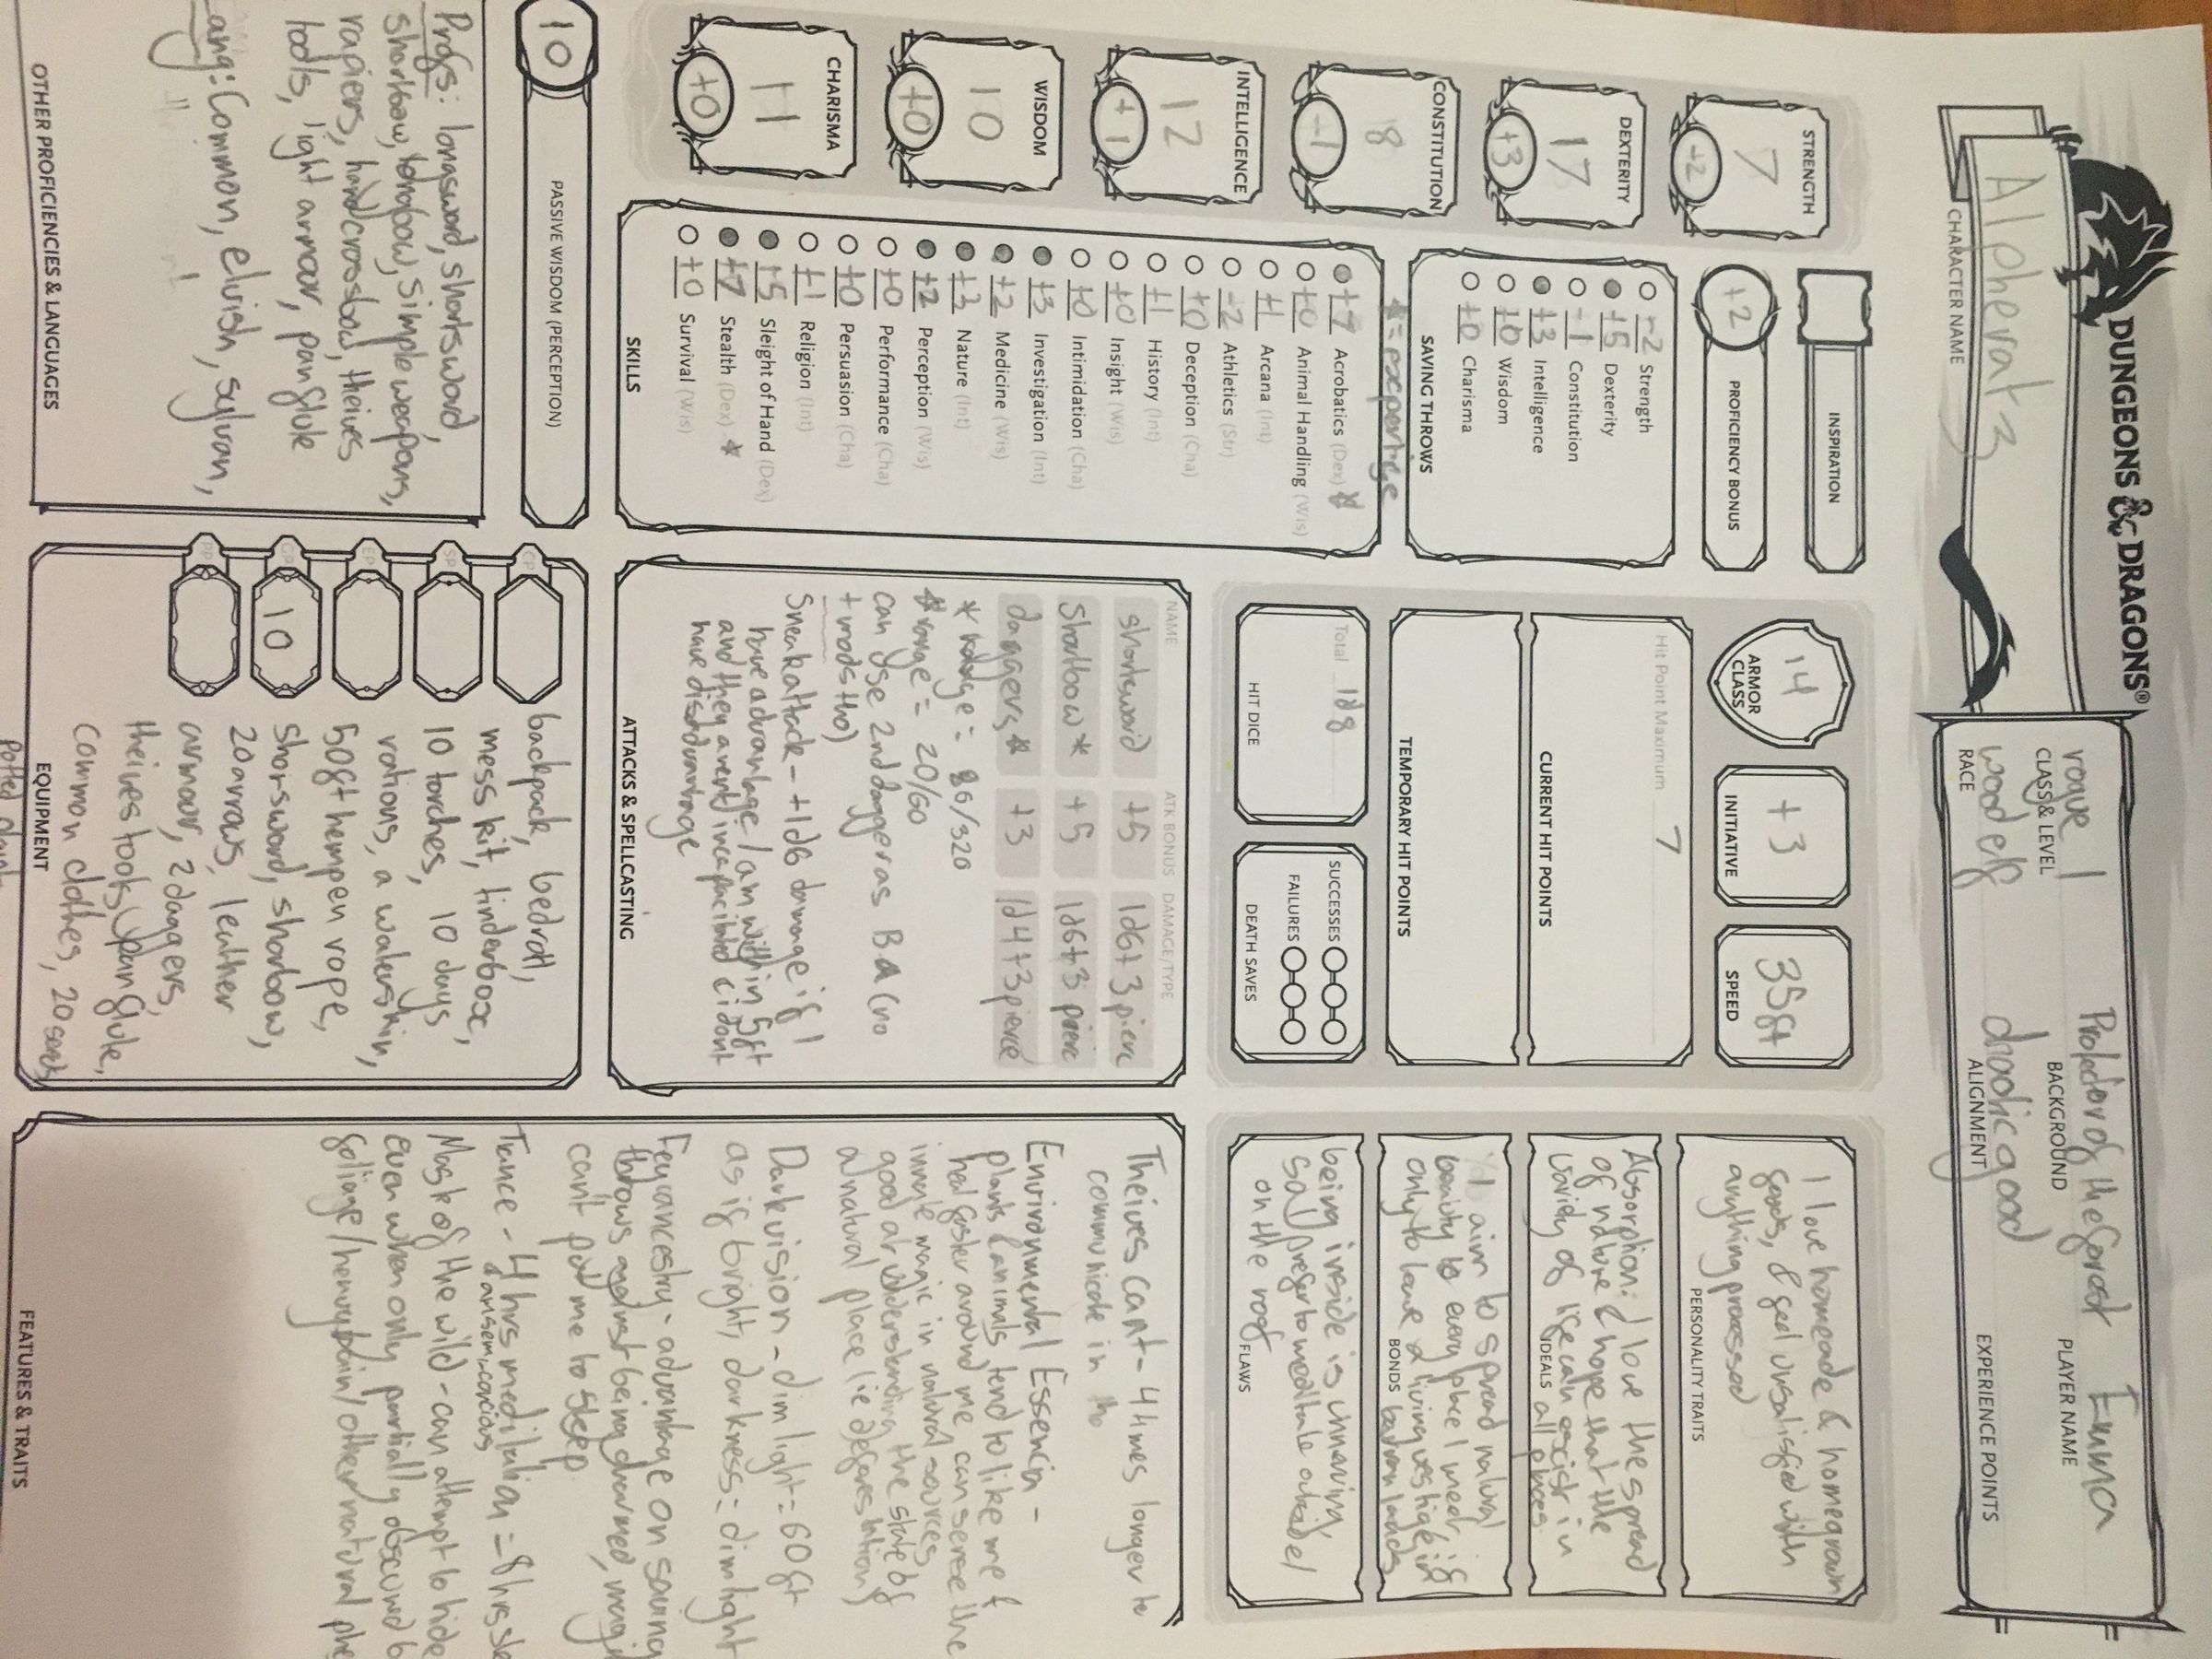 DUNGEONS & DRAGONS®
Alpheratz
CHARACTER NAME
rogue 1
CLASS & LEVEL
Protector of the forest
BACKGROUND
Emma
PLAYER NAME
wood elf
RACE
chaotic good
ALIGNMENT
EXPERIENCE POINTS
STRENGTH
7
-2
DEXTERITY
17
+3
CONSTITUTION
8
-1
INTELLIGENCE
12
+1
WISDOM
10
+0
CHARISMA
11
+0
INSPIRATION
+2
PROFICIENCY BONUS
-2 Strength
+5 Dexterity
-1 Constitution
+3 Intelligence
+0 Wisdom
+0 Charisma
SAVING THROWS
* = expertise
+7 Acrobatics (Dex) *
+0 Animal Handling (Wis)
+1 Arcana (Int)
-2 Athletics (Str)
+0 Deception (Cha)
+1 History (Int)
+0 Insight (Wis)
+0 Intimidation (Cha)
+3 Investigation (Int)
+2 Medicine (Wis)
+3 Nature (Int)
+2 Perception (Wis)
+0 Performance (Cha)
+0 Persuasion (Cha)
+1 Religion (Int)
+5 Sleight of Hand (Dex)
+7 Stealth (Dex) *
+0 Survival (Wis)
SKILLS
10
PASSIVE WISDOM (PERCEPTION)
Profs: longsword, shortsword,
shortbow, longbow, simple weapons,
rapiers, hand crossbow, theives
tools, light armour, pan flute
Lang: Common, elvish, sylvan,
OTHER PROFICIENCIES & LANGUAGES
14
ARMOR
CLASS
+3
INITIATIVE
35ft
SPEED
Hit Point Maximum 7
CURRENT HIT POINTS
TEMPORARY HIT POINTS
Total 1d8
HIT DICE
SUCCESSES
FAILURES
DEATH SAVES
NAME ATK BONUS DAMAGE/TYPE
shortsword +5 1d6+3 pierc
Shortbow * +5 1d6+3 pierc
daggers * +3 1d4+3 pierce
* range = 86/320
* range = 20/60
can use 2nd dagger as BA (no
+ mods tho)
Sneak attack - +1d6 damage if I
have advantage / am within 5ft
and they arent incapacitated & i dont
have disadvantage
ATTACKS & SPELLCASTING
CP
SP
EP
GP
10
PP
backpack, bedroll,
mess kit, tinderbox,
10 torches, 10 days
rations, a waterskin,
50ft hempen rope,
shorsword, shorbow,
20 arrows, leather
armour, 2 daggers,
theives tools, pan flute,
common clothes, 20 seeds
EQUIPMENT
potted
I love homeade & homegrown
foods, & feel unsatisfied with
anything processed
PERSONALITY TRAITS
Absorption: I love the spread
of nature & hope that the
variety of life can excist in
all places
IDEALS
I aim to spread natural
beauty to every place I meet, if
only to leave a living vestige in
badman lands
BONDS
being inside is unnerving,
so I prefer to meditate outside /
on the roof
FLAWS
Theives Cant - 4 times longer to
communicate in tho
Environmental Essencia -
plants & animals tend to like me &
heal faster around me, can sense the
innate magic in natural sources
good at understanding the state of
a natural place (ie deforestation)
Darkvision - dim light = 60ft
as if bright, darkness = dim light
Fey ancestry - advantage on saving
throws against being charmed, magic
cant put me to sleep
Trance - 4 hrs meditation = 8 hrs
& am semi-concious
Mask of the wild - can attempt to hide
even when only partially obscured
foliage / heavy rain / other natural
FEATURES & TRAITS